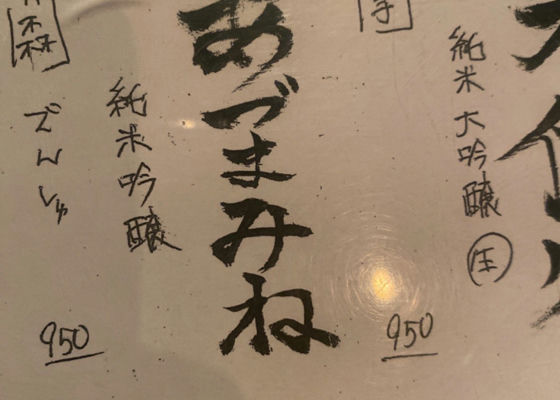 純米大吟醸
生
手
あづまみね
純米吟醸
950
森
でんしゅ
950